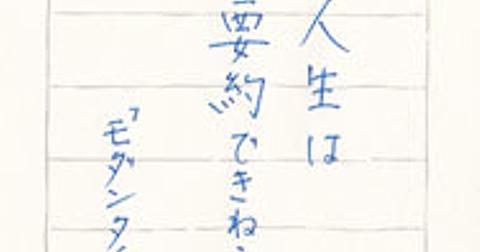 人生は
要約できねえ
『モダンタイ